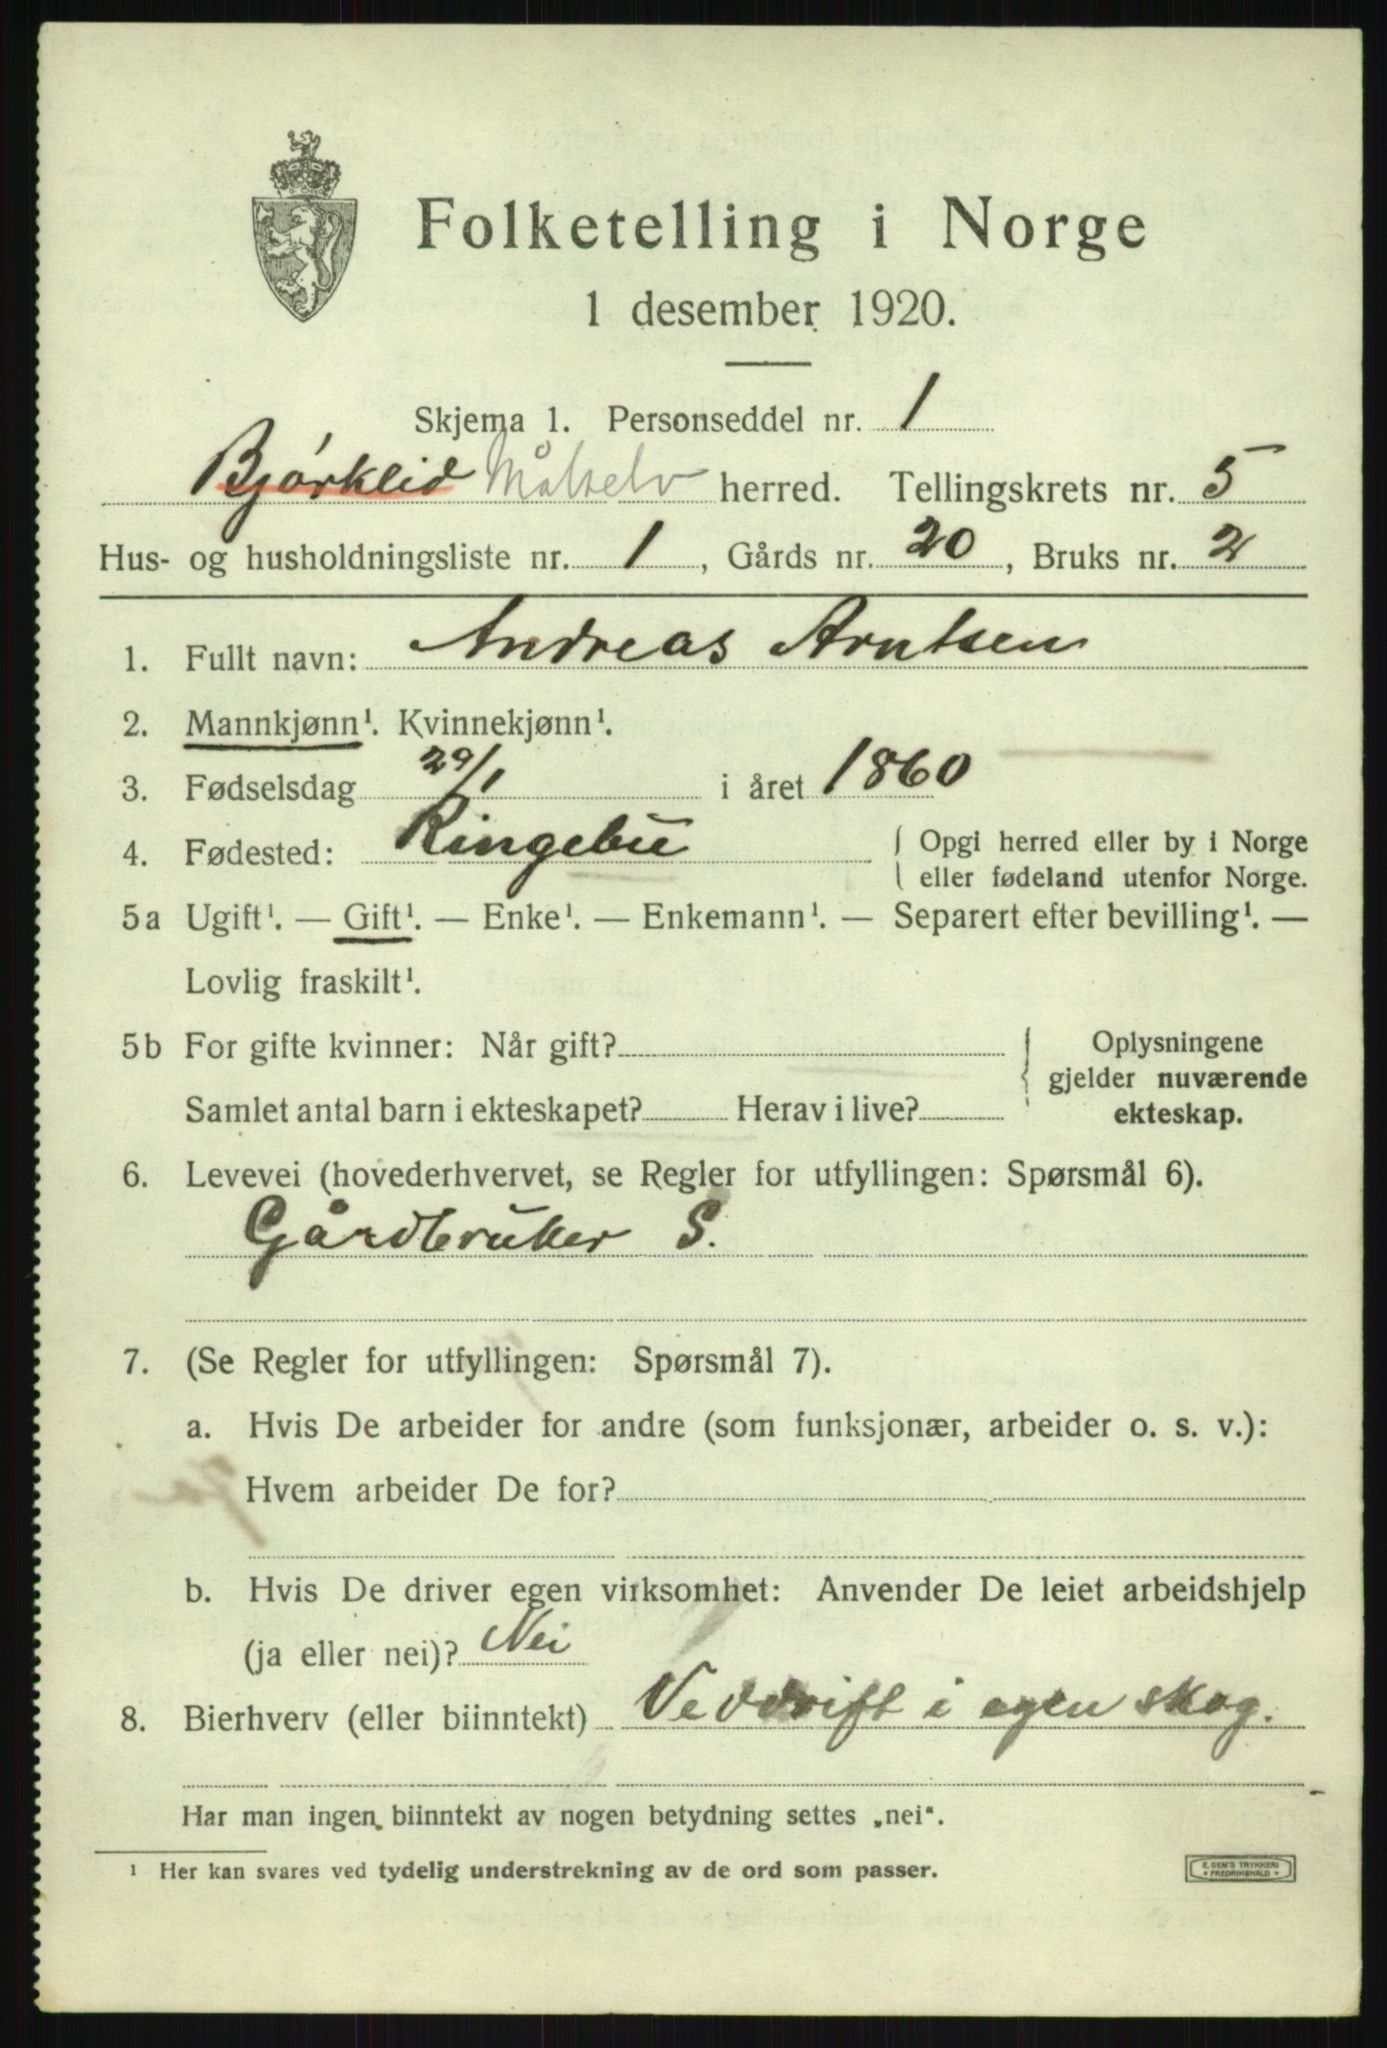 Folketelling i Norge
1 desember 1920.
Skjema 1. Personseddel nr. 1
Bjørklid Målselv herred. Tellingskrets nr. 5
Hus- og husholdningsliste nr. 1, Gårds nr. 20, Bruks nr. 2
1. Fullt navn: Andreas Arntsen
2. Mannkjønn¹. Kvinnekjønn¹.
3. Fødselsdag 29/1 i året 1860
4. Fødested: Ringebu { Opgi herred eller by i Norge
eller fødeland utenfor Norge.
5a Ugift¹. — Gift¹. — Enke¹. — Enkemann¹. — Separert efter bevilling¹. —
Lovlig fraskilt¹.
5b For gifte kvinner: Når gift? { Oplysningene
gjelder nuværende
Samlet antal barn i ekteskapet? Herav i live? ekteskap.
6. Levevei (hovederhvervet, se Regler for utfyllingen: Spørsmål 6).
Gårdbruker S.
7. (Se Regler for utfyllingen: Spørsmål 7).
a. Hvis De arbeider for andre (som funksjonær, arbeider o. s. v.):
Hvem arbeider De for?
b. Hvis De driver egen virksomhet: Anvender De leiet arbeidshjelp
(ja eller nei)? Nei
8. Bierhverv (eller biinntekt) Veddrift i egen skog.
Har man ingen biinntekt av nogen betydning settes „nei“.
¹ Her kan svares ved tydelig understrekning av de ord som passer.
E. SEM'S TRYKKERI
FREDRIKSHALD